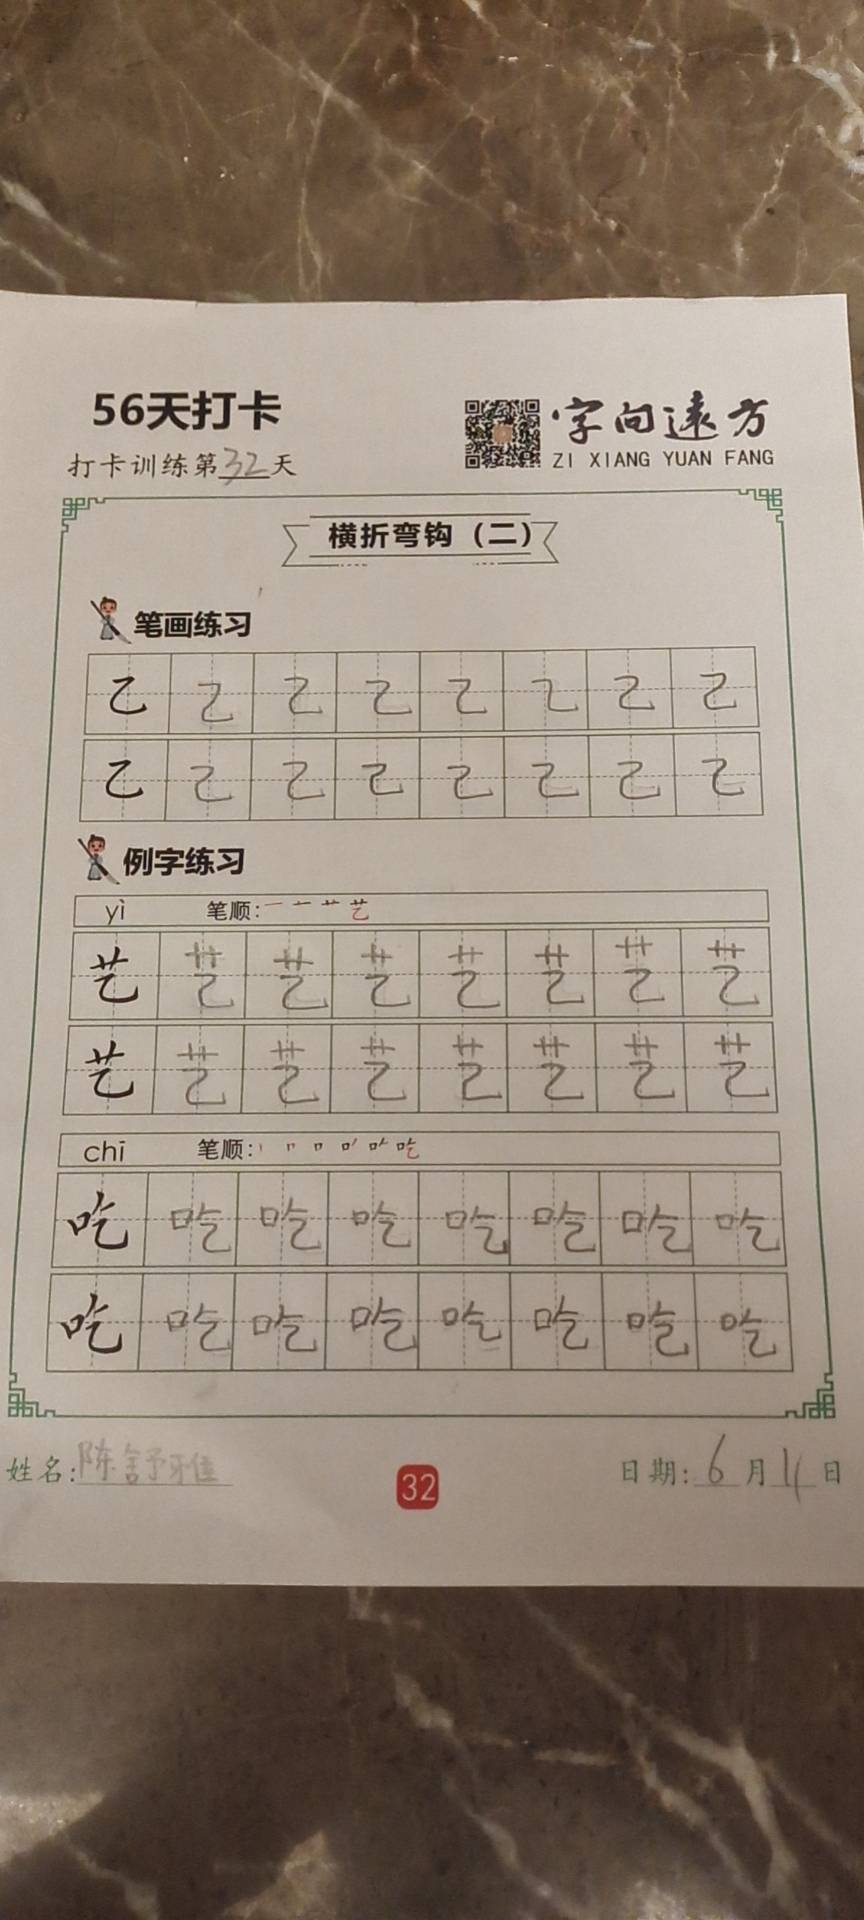 56天打卡
字向远方
打卡训练第32天
ZI XIANG YUAN FANG
横折弯钩（二）
笔画练习
乙 乙 乙 乙 乙 乙 乙 乙
乙 乙 乙 乙 乙 乙 乙 乙
例字练习
yì 笔顺: 一 十 艹 艺
艺 艺 艺 艺 艺 艺 艺 艺
艺 艺 艺 艺 艺 艺 艺 艺
chī 笔顺:
吃 吃 吃 吃 吃 吃 吃 吃
吃 吃 吃 吃 吃 吃 吃 吃
姓名:陈舒雅
32
日期:6月4日